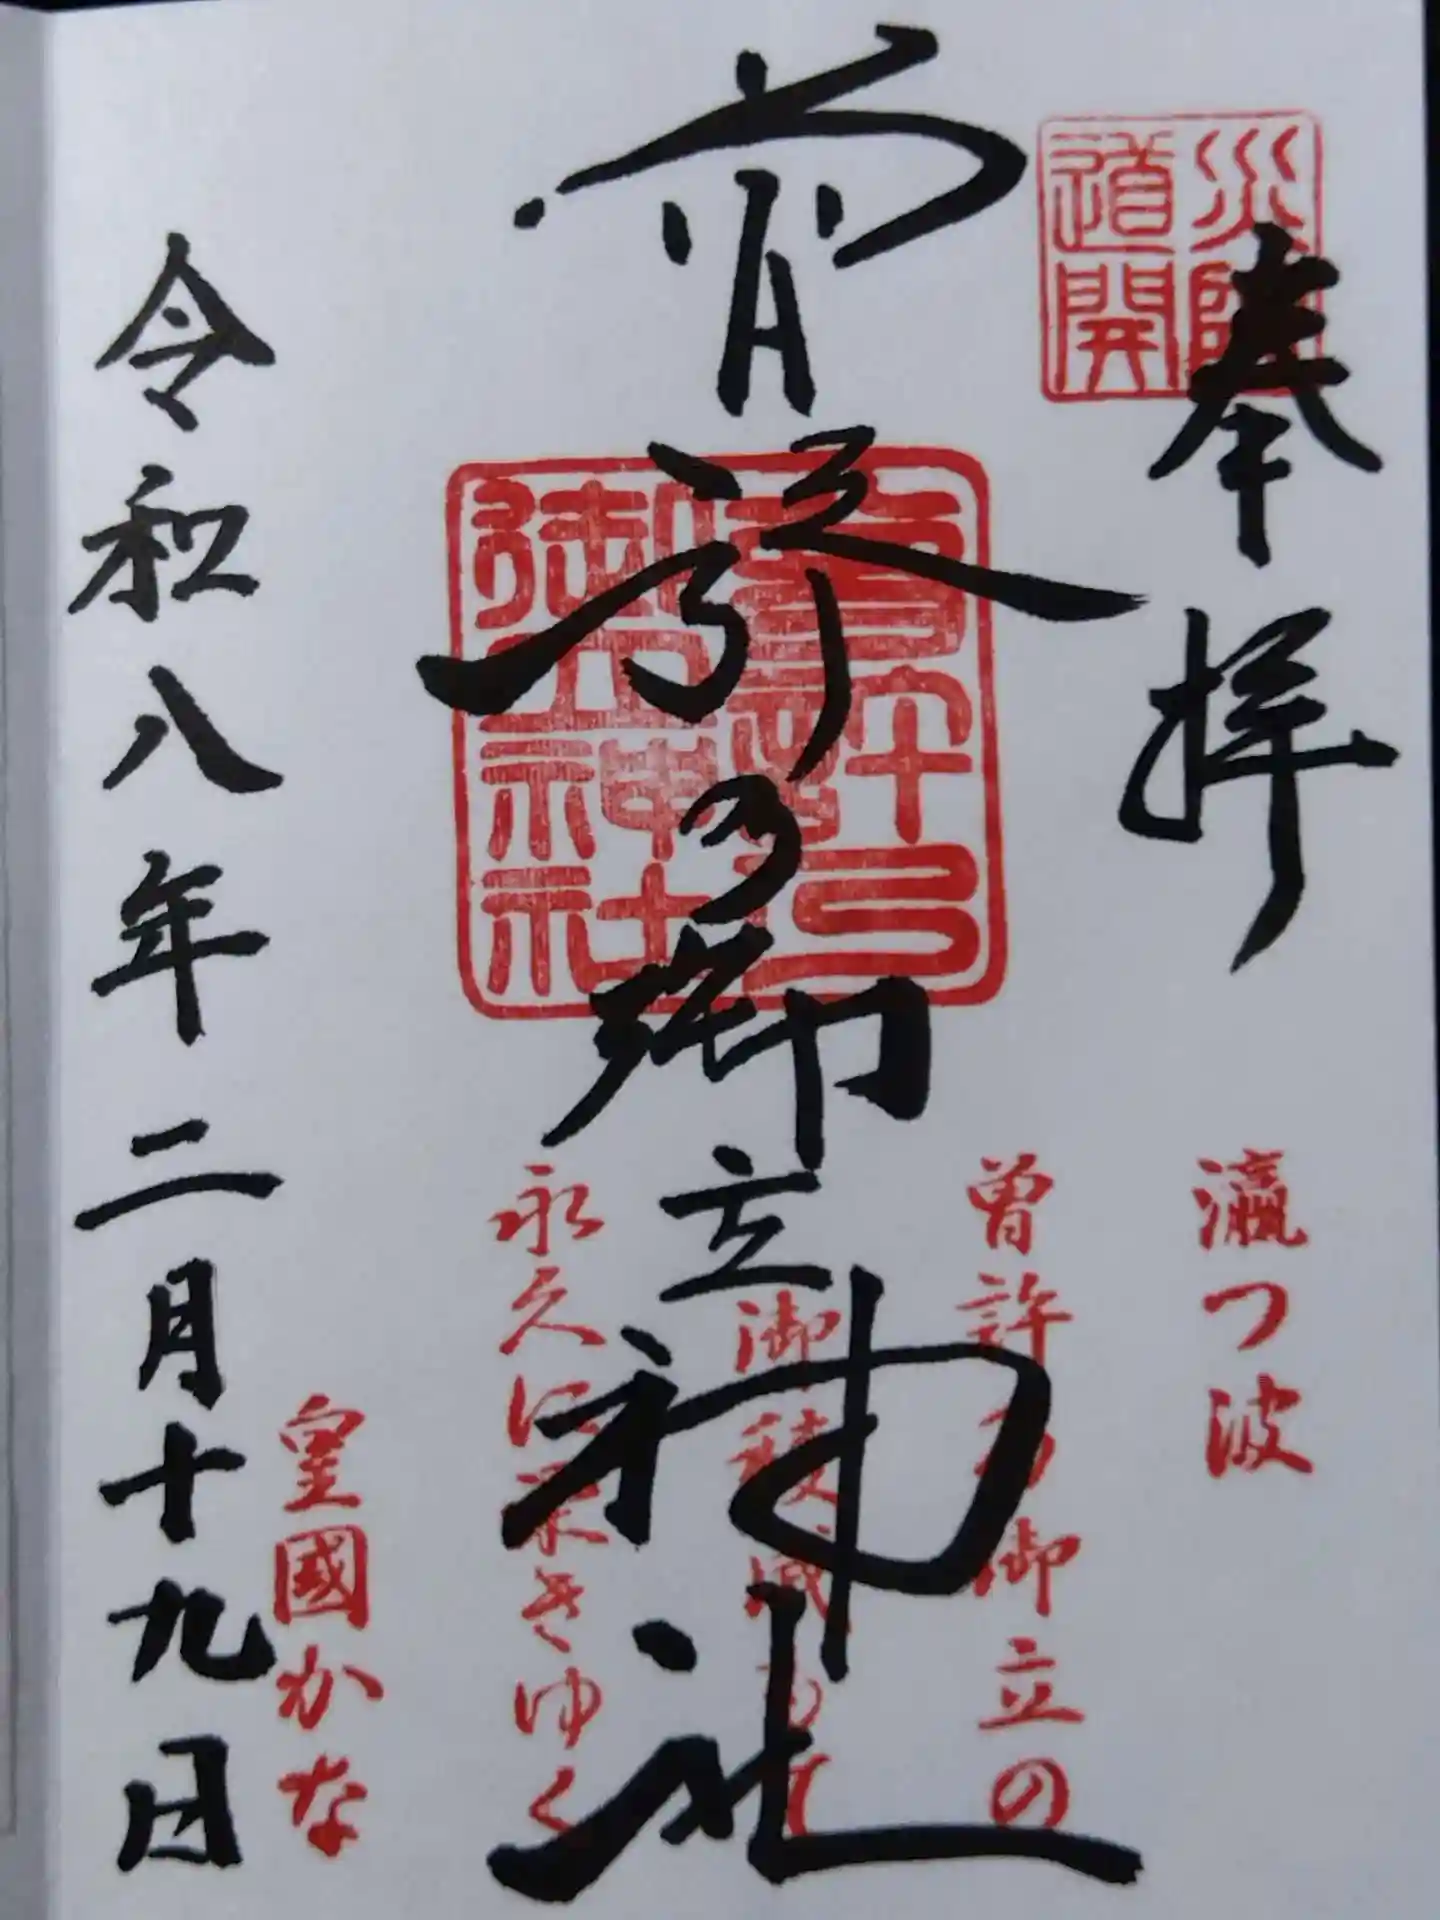 災除
道開
奉拝
瀛つ波
曽許乃御立の
曽許乃御立神社
曽許乃御立神社
御稜威もて
永久に栄きゆく
皇國かな
令和八年二月十九日